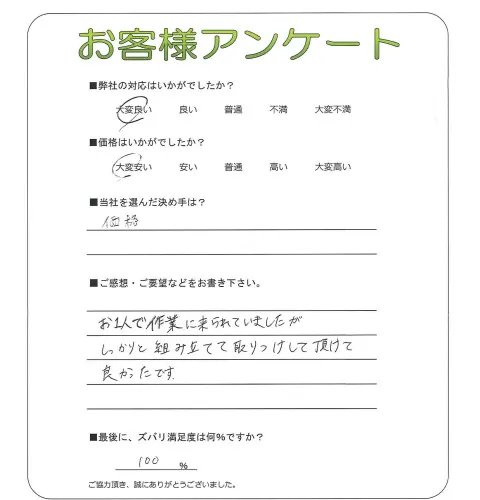 お客様アンケート
■弊社の対応はいかがでしたか？
大変良い 良い 普通 不満 大変不満
■価格はいかがでしたか？
大変安い 安い 普通 高い 大変高い
■当社を選んだ決め手は？
価格
■ご感想・ご要望などをお書き下さい。
お1人で作業に来られていましたが
しっかりと組み立てて取りつけして頂けて
良かったです。
■最後に、ズバリ満足度は何%ですか？
100 %
ご協力頂き、誠にありがとうございました。